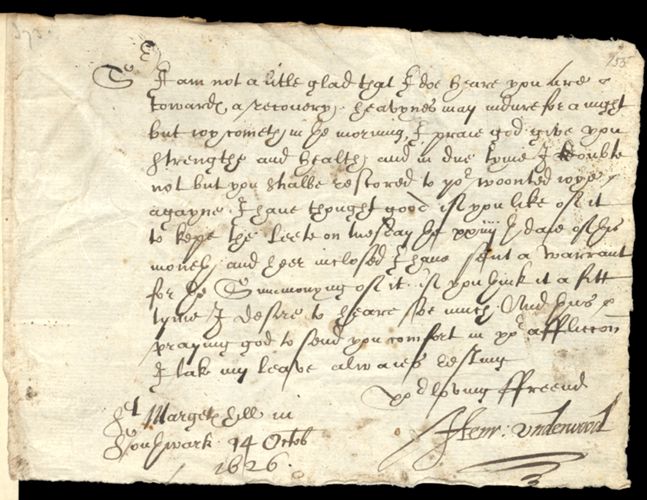 Sr I am not a litle glad that I doe heare you are
towards a recovery. heavynes may indure for a night
but ioy cometh in the morning, I praie god give you
strengthe and health, and in due tyme I doubte
not but you shalbe restored to yor woonted ioye
agayne. I have thought good if you like of it
to kepe the Leete on tuesday the xxiiijth daie of this
moneth, and heer inclosed I have sent a warrant
for the Summonyng of it. if you think it a fitt
tyme I desire to heare so much. And thus
praying god to send you comfort in yor affliccon
I tak my leave alwaies resting
yor loving ffreend
Henr. Underwood
St Margetshill in
Southwark 14 Octob
1626.